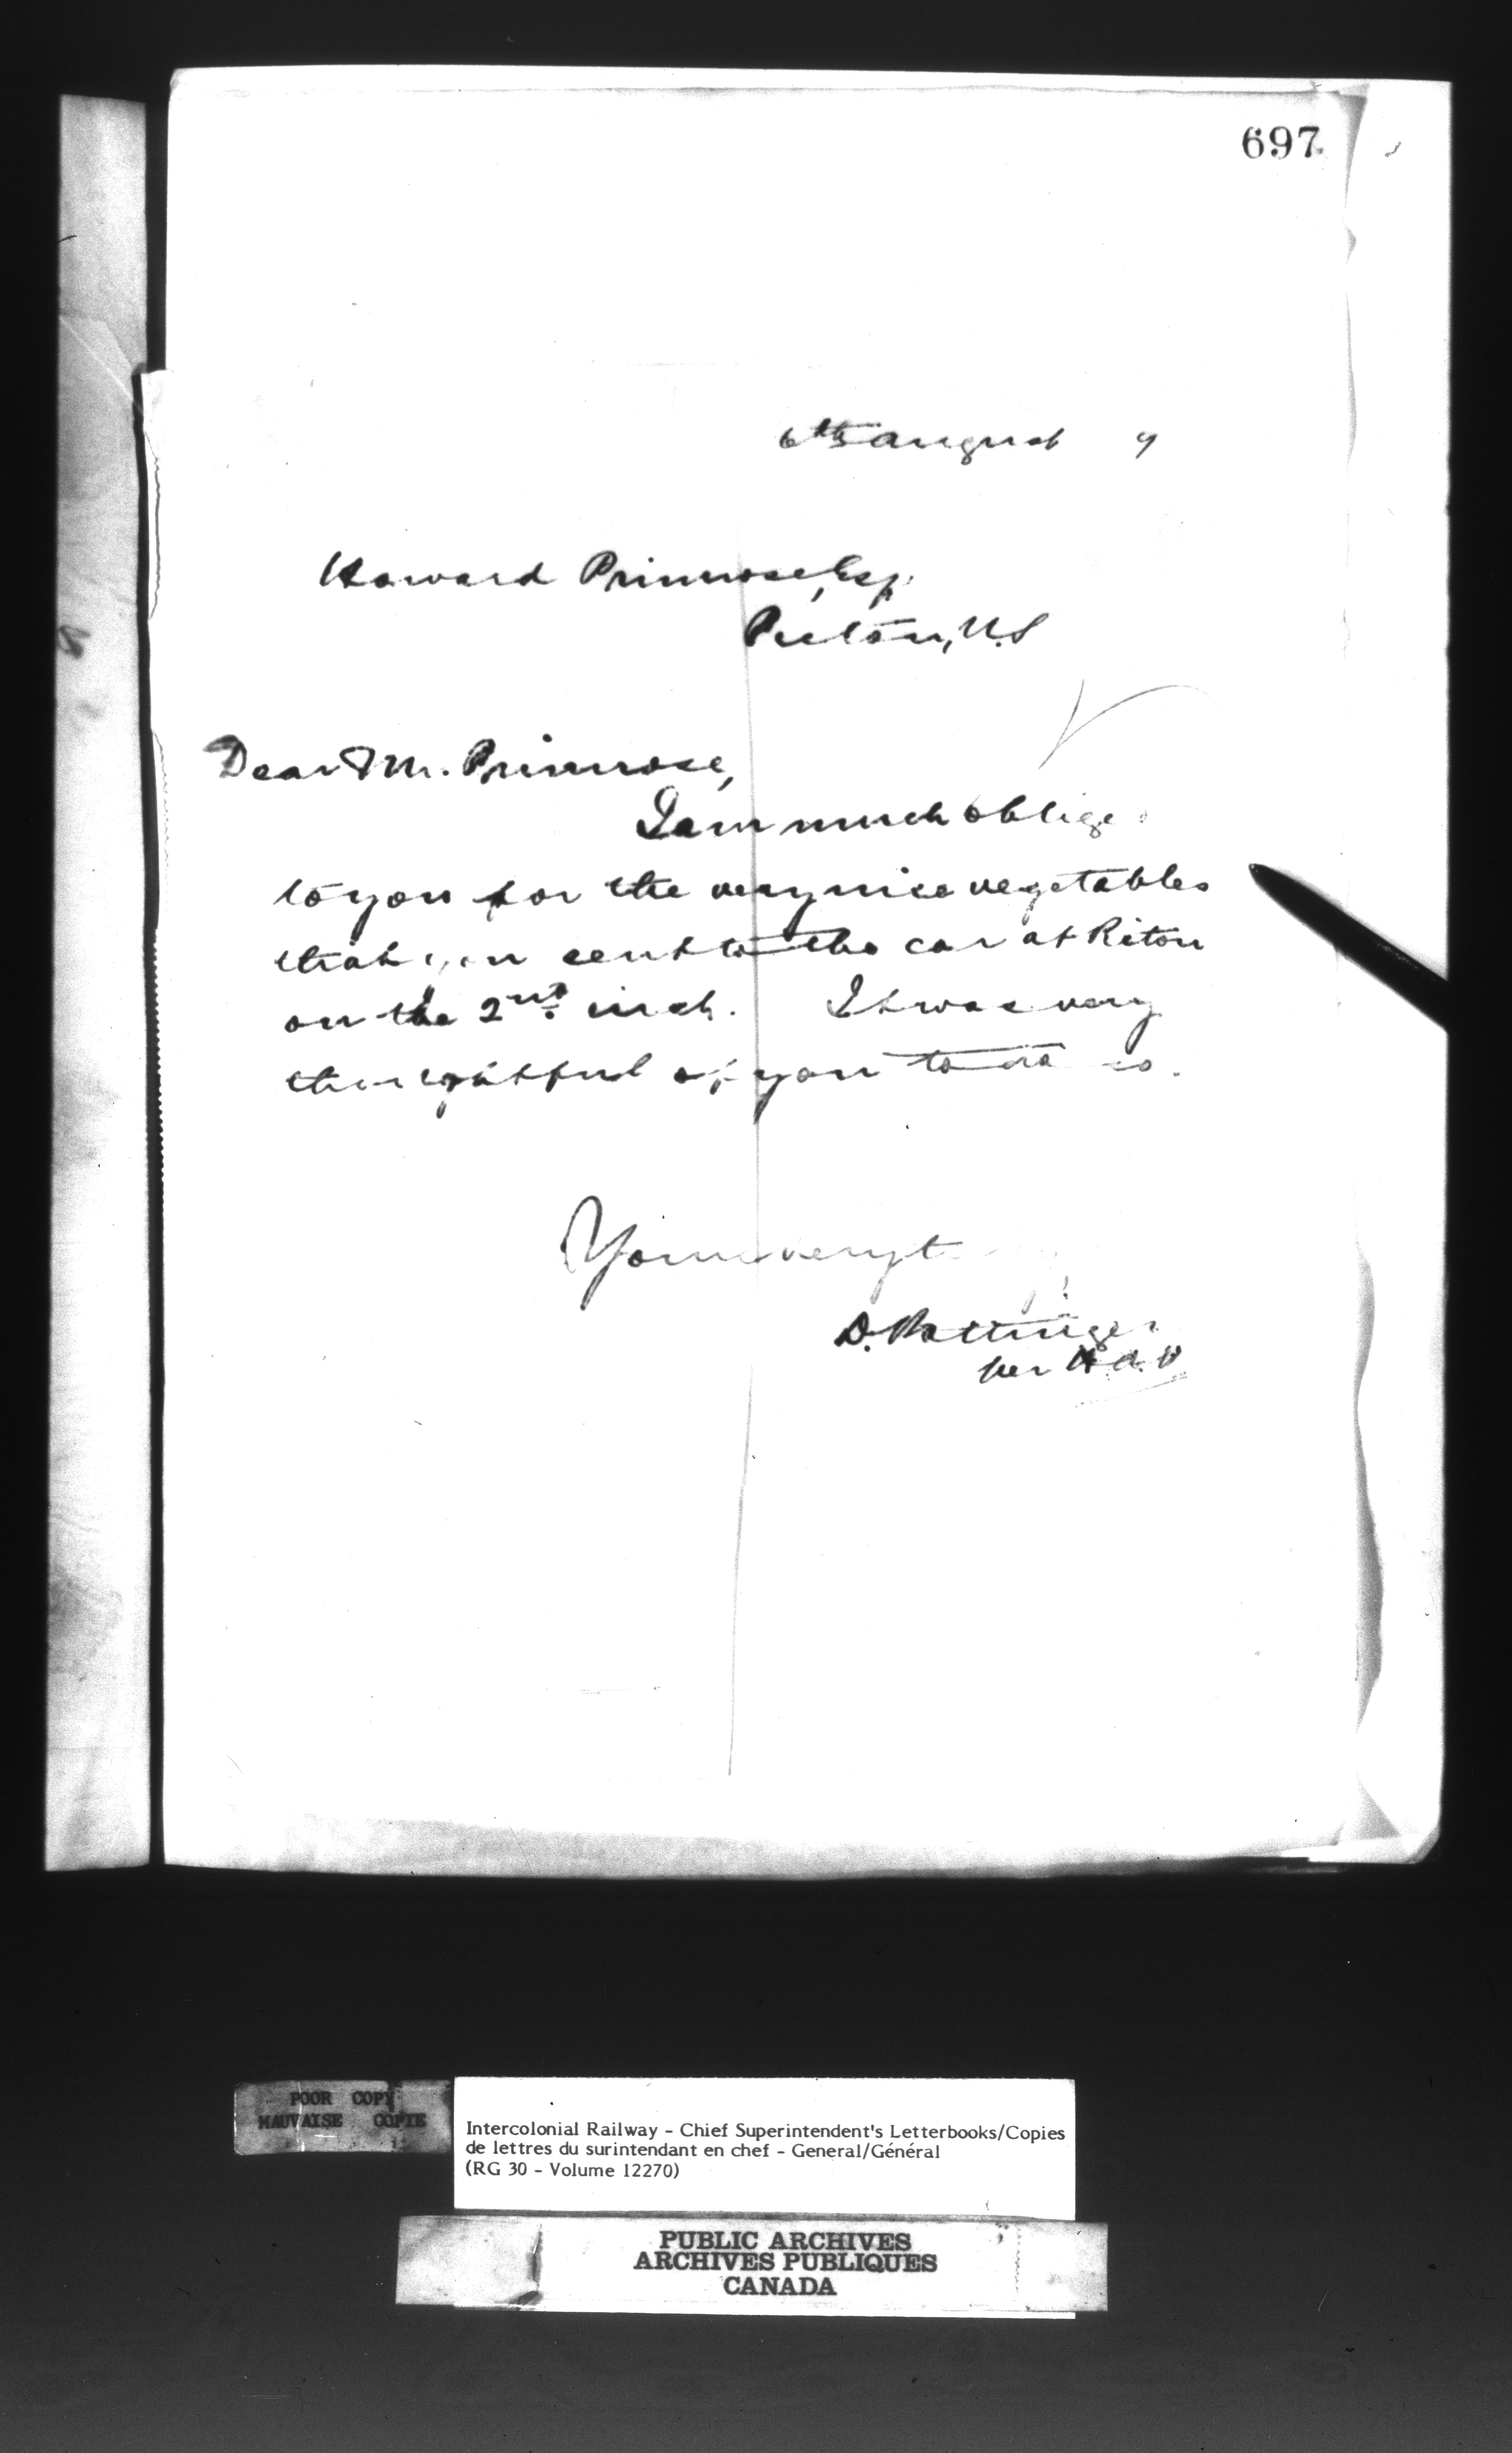 697
6th August 9
Howard Primrose, Esq.
Pictou, N.S
Dear Mr. Primrose,
I am much oblige
to you for the very nice vegetables
that you sent to the car at Pictou
on the 2nd inst. It was very
thoughtful of you to do so.
Yours very t
D. Pottinger
per
POOR COPY
MAUVAISE COPIE
Intercolonial Railway - Chief Superintendent's Letterbooks/Copies
de lettres du surintendant en chef - General/Général
(RG 30 - Volume 12270)
PUBLIC ARCHIVES
ARCHIVES PUBLIQUES
CANADA